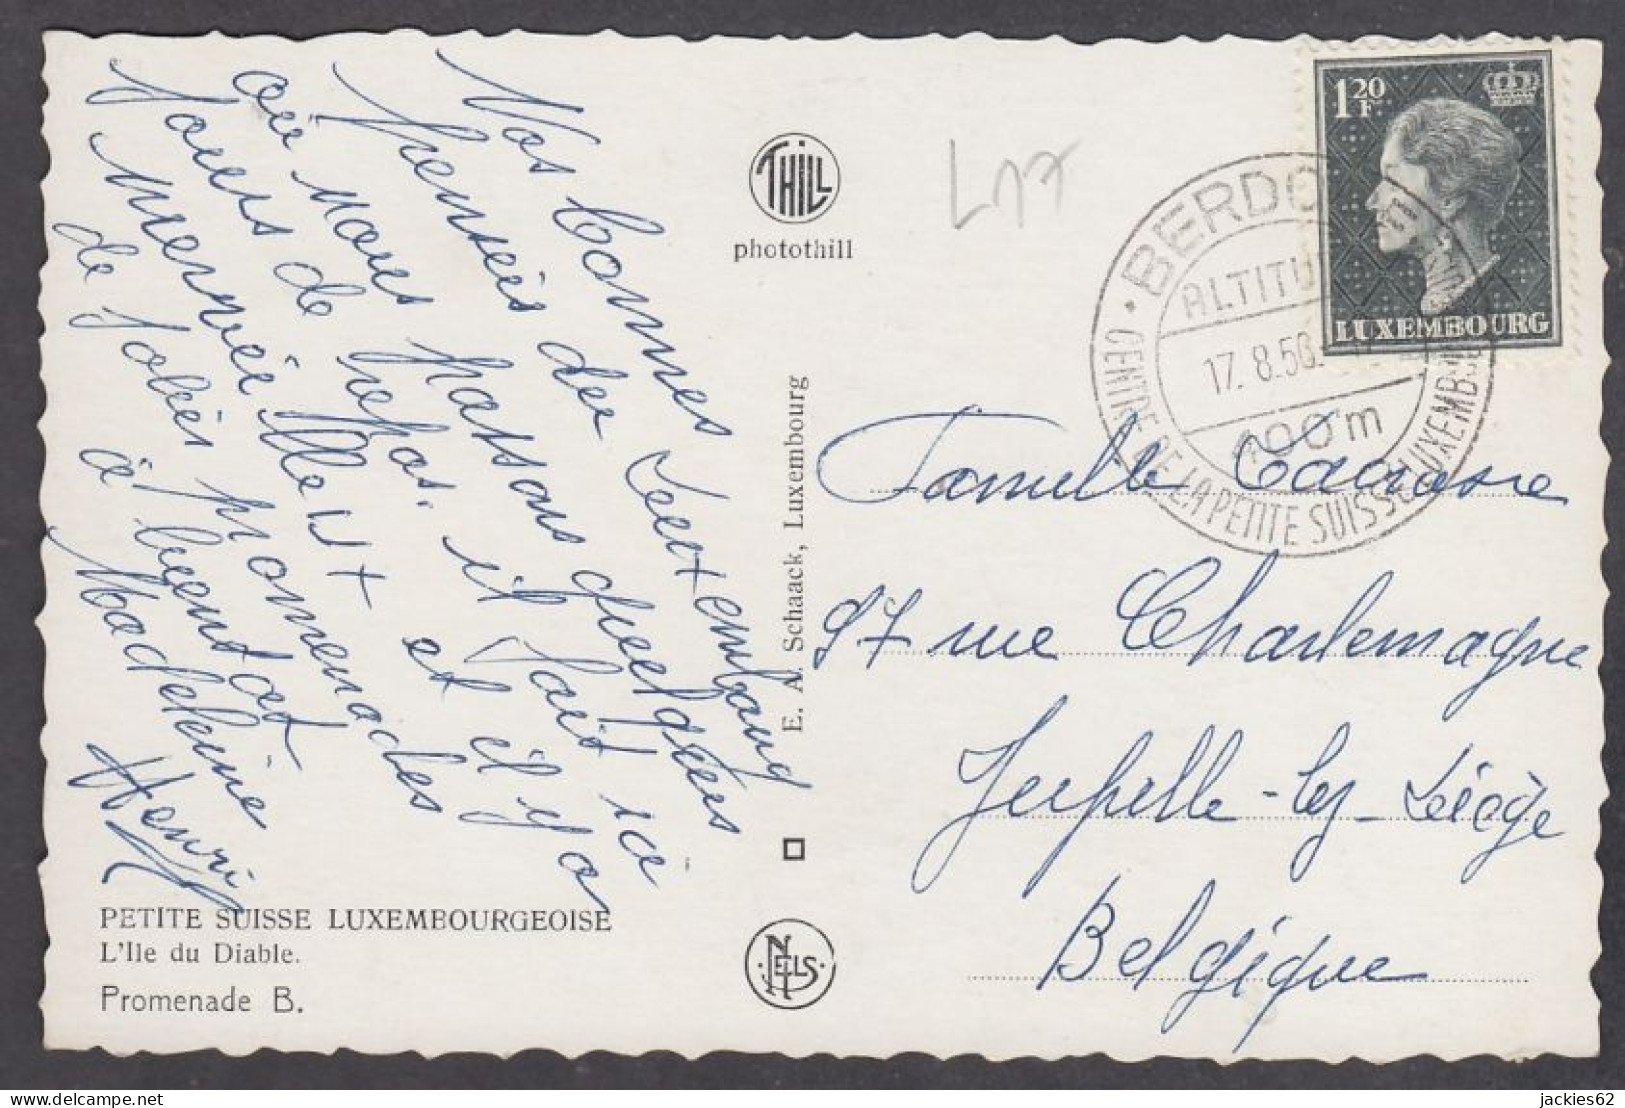 Nos bonnes
pensées du Luxembourg
où nous passons quelques
jours de repos. il fait ici
merveilleux et il y a
de jolies promenades
à bientôt
Madeleine
Henri
PETITE SUISSE LUXEMBOURGEOISE
L'Ile du Diable.
Promenade B.
THILL
photothill
E. A. Schaack, Luxembourg
NELS
L17
1 20 F.
LUXEMBOURG
ALTITU
17. 8. 50.
400 m
CENTRE DE LA PETITE SUISSE LUXEMB
Famille
97 rue Charlemagne
Jupille-lez-Liège
Belgique
jackies62